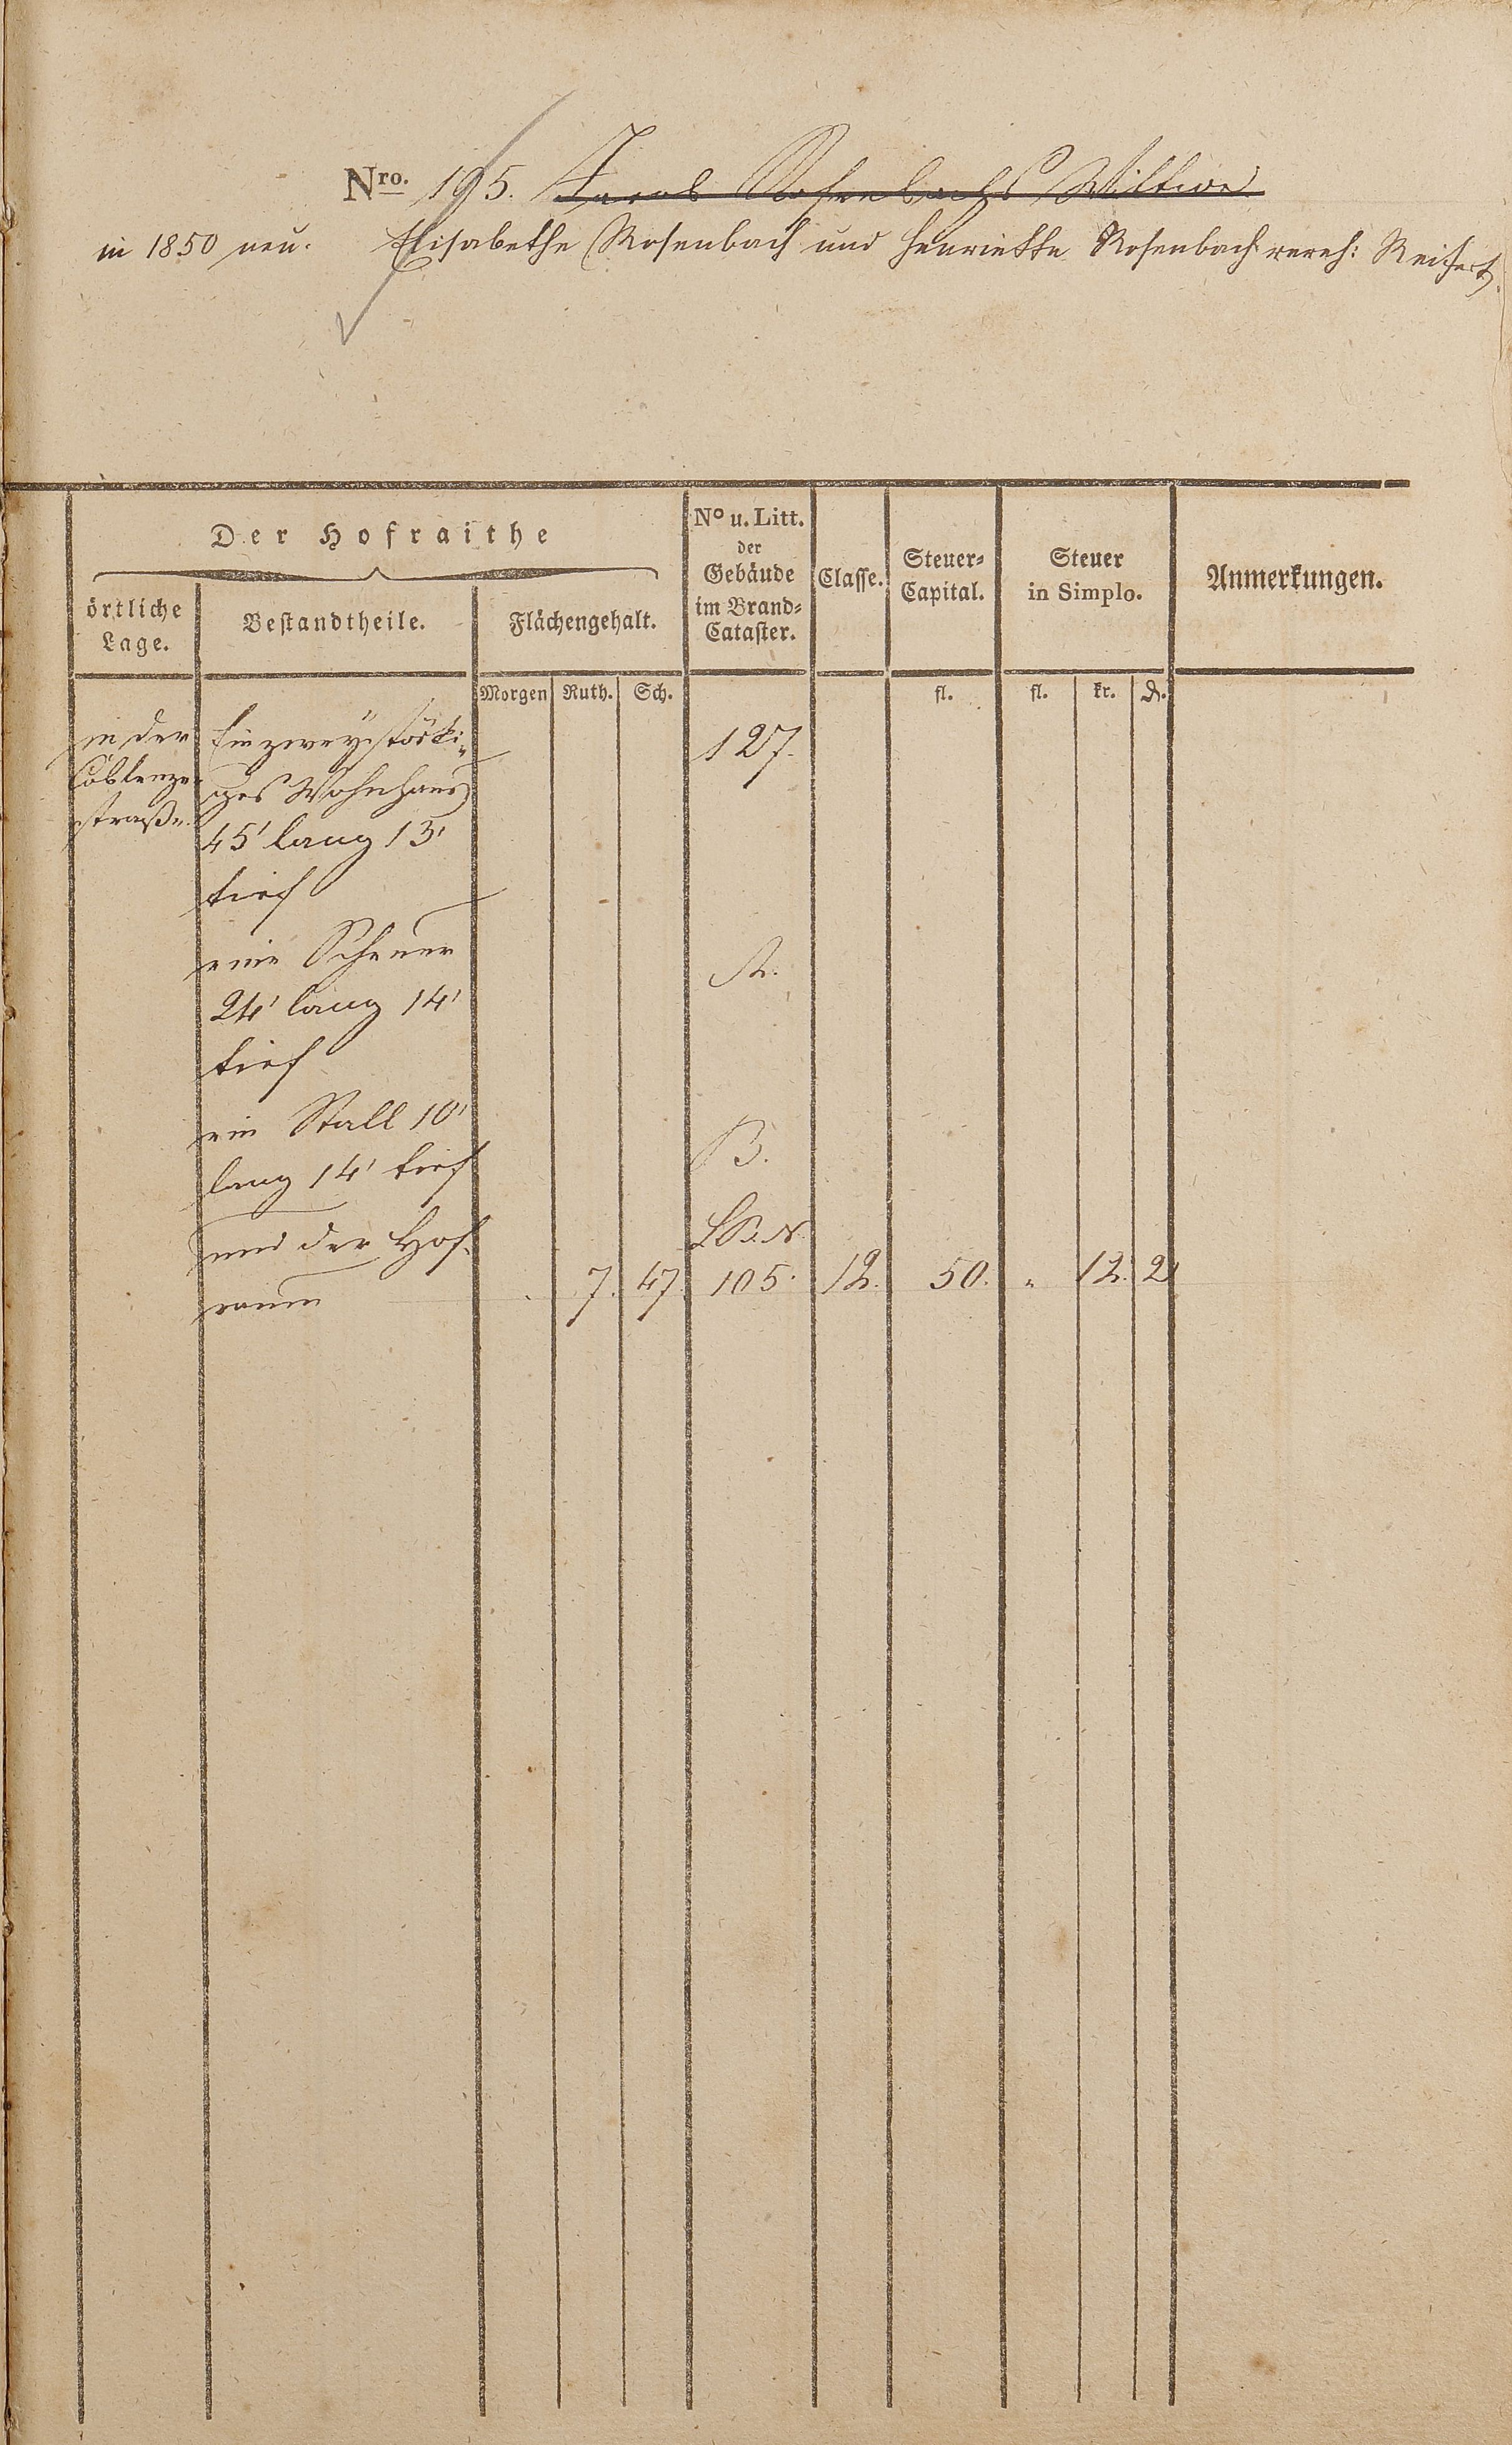 Nro. 195. Jacob Rosenbachs Wittwe
in 1850 neu. Elisabethe Rosenbach und Henriette Rosenbach vereh: Reichert.
Der Hofraithe
örtliche Lage.
Bestandtheile.
Flächengehalt.
No u. Litt. der Gebäude im Brand-Cataster.
Classe.
Steuer-Capital.
Steuer in Simplo.
Anmerkungen.
Morgen Ruth. Sch. fl. fl. kr. d.
in der Ein zweystöcki- 127.
Coblenzer ges Wohnhaus
straße. 45' lang 13'
tief
eine Scheuer A.
24' lang 14'
tief
ein Stall 10'
lang 14' tief B.
und der Hof- LB.N.
raum 7. 47. 105. 12. 50. " 12. 2